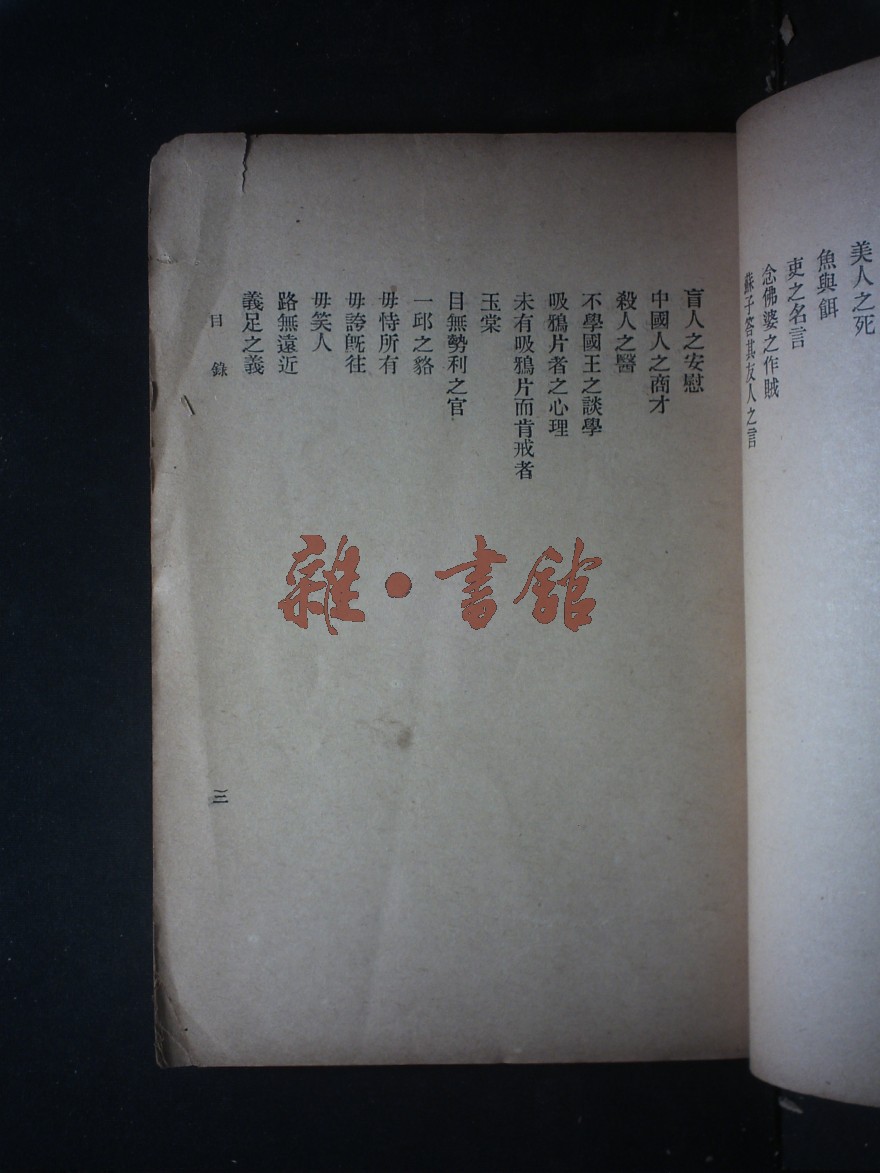 美人之死
魚與餌
吏之名言
念佛婆之作賊
蘇子答其友人之言
盲人之安慰
中國人之商才
殺人之醫
不學國王之談學
吸鴉片者之心理
未有吸鴉片而肯戒者
玉棠
目無勢利之官
一邱之貉
毋恃所有
毋誇既往
毋笑人
路無遠近
義足之義
目錄
三
雜·書館